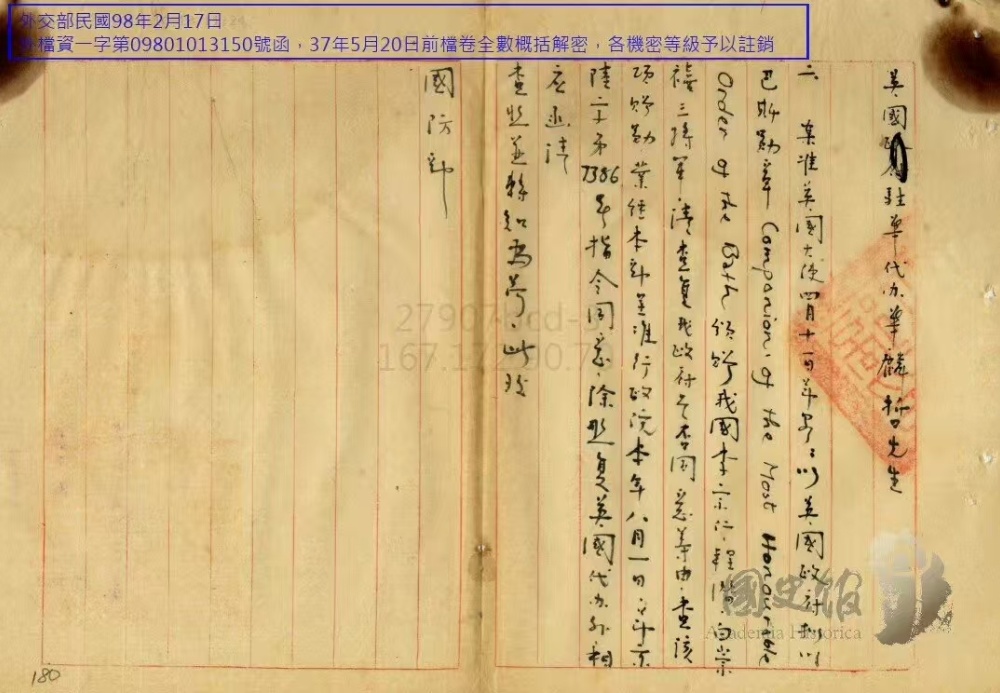 外交部民國98年2月17日
外檔資一字第09801013150號函，37年5月20日前檔卷全數概括解密，各機密等級予以註銷
英國駐華代办華麟哲先生
二 案准英國大使四月十一日英國政府擬以
巴斯勳章 Companion of the Most Honourable
Order of the Bath 頒贈我國李宗仁程潛白崇
禧三將軍請查復我政府是否同意等由查該
項贈勳業經本部呈准行政院本年八月一日
陸字第7386号指令同意除照复英國代办外相
应函請
查照並轉知為荷此致
國防部
27907
167.17
國史館
Academia Historica
180